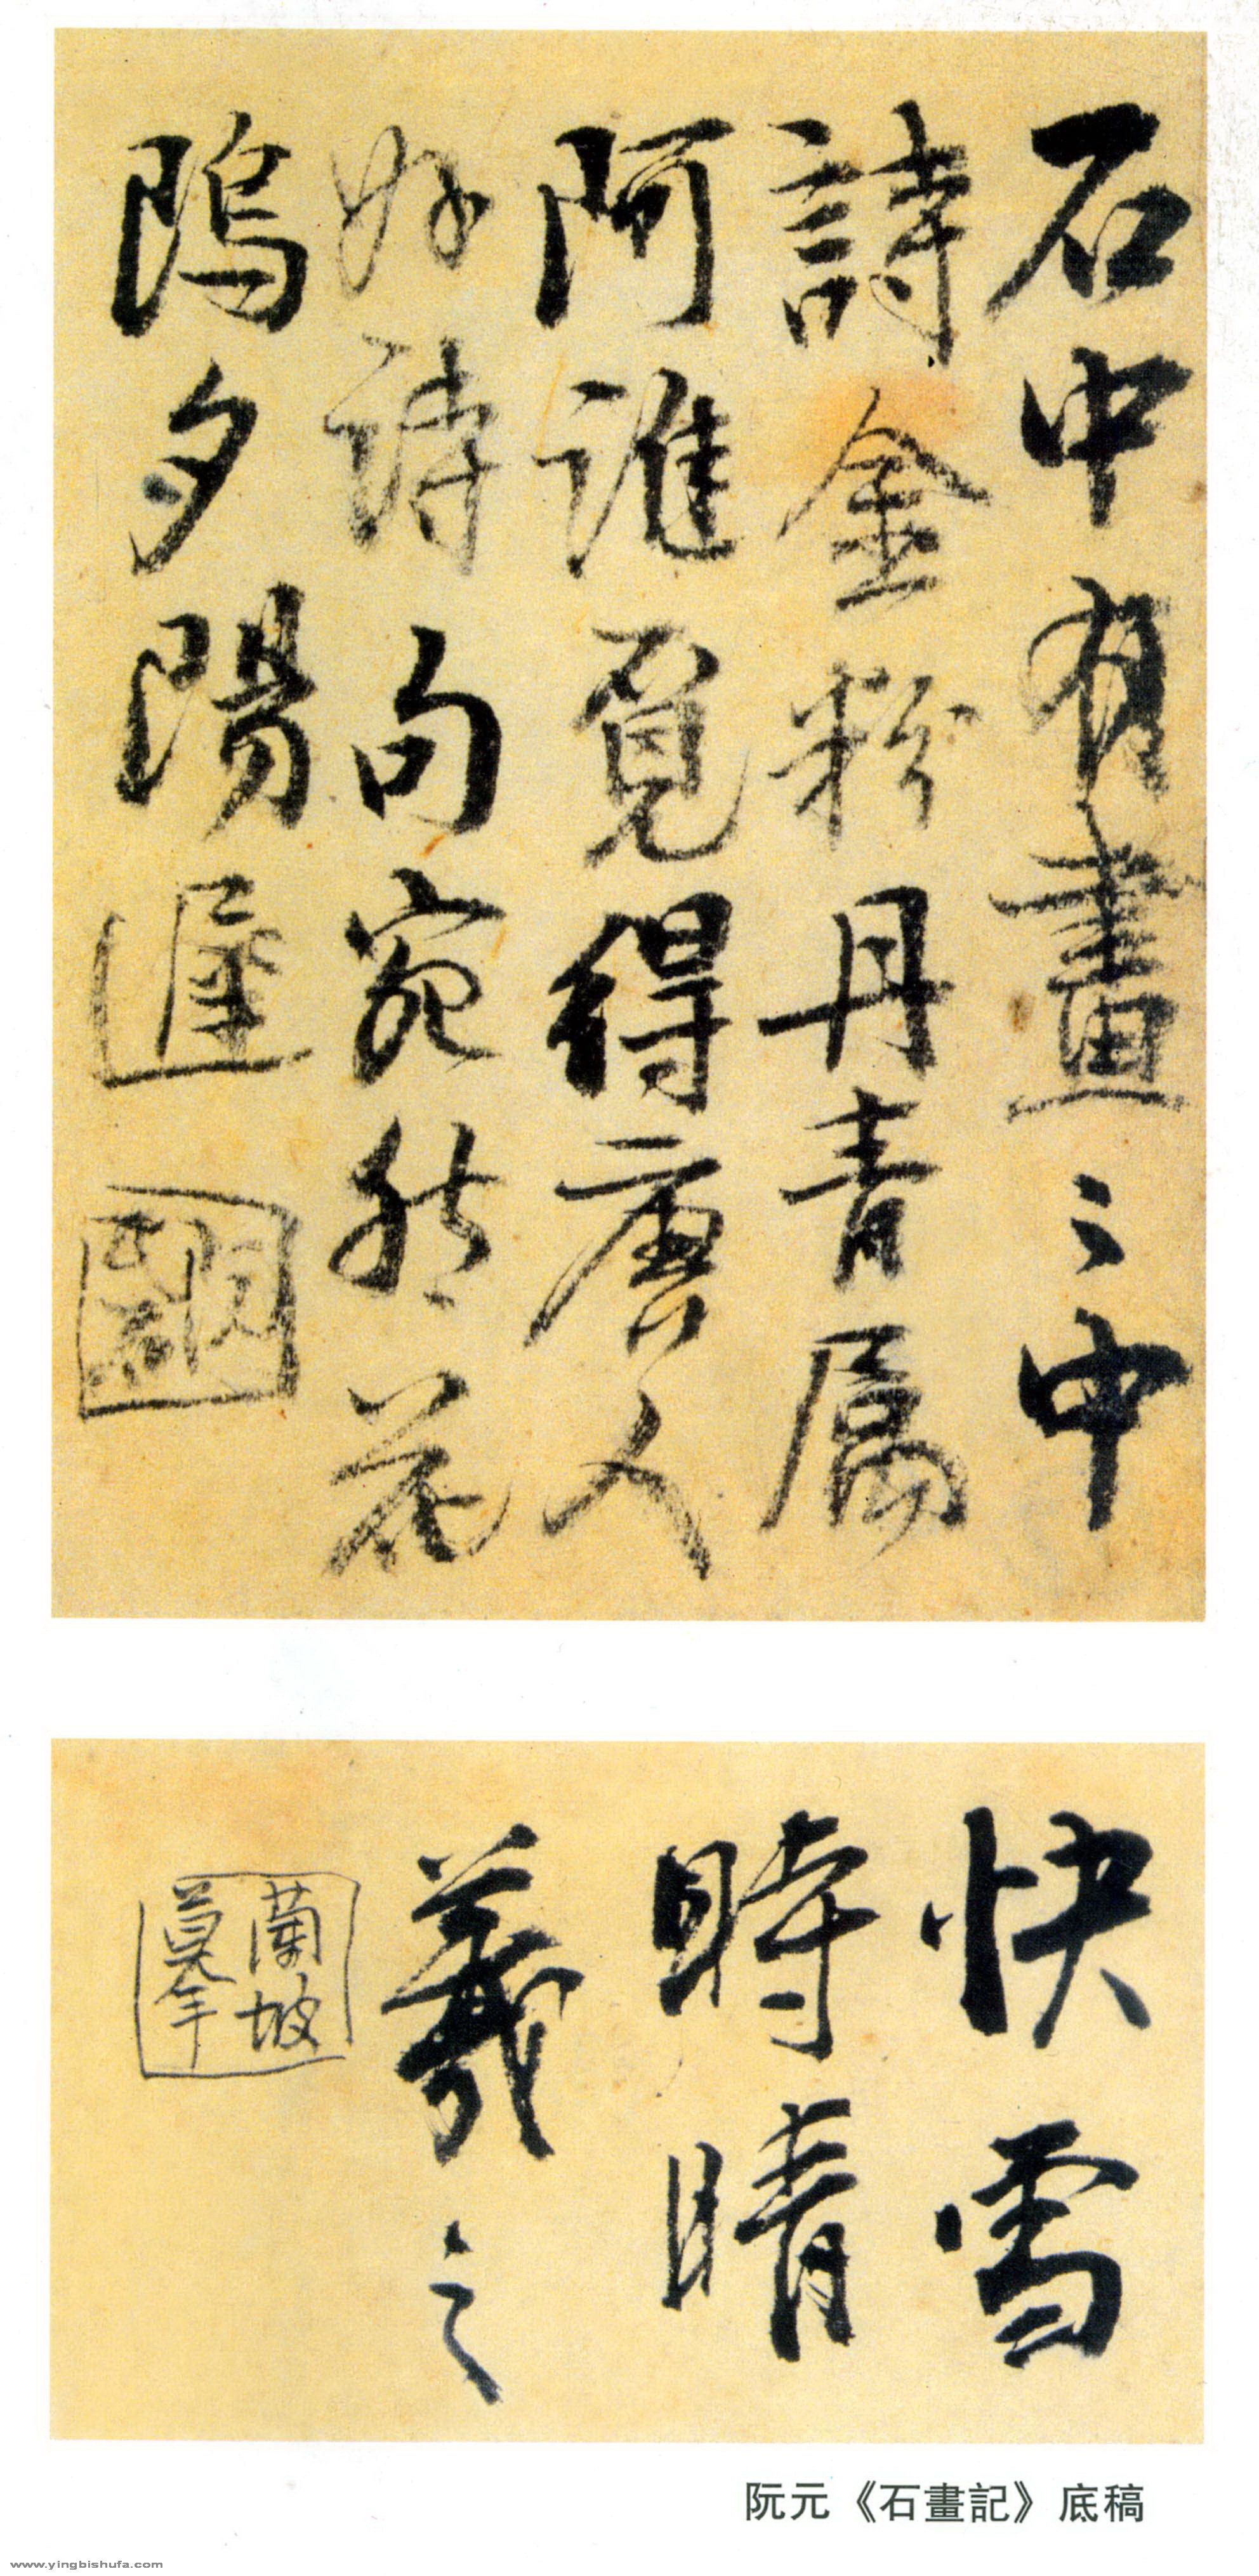 石中有畫〻中
詩金粉丹青属
阿誰覓得唐人
好詩句宛然花
隖夕陽遲
快雪
時晴
羲之
蘭坡
摹
阮元《石畫記》底稿
www.yingbishufa.com